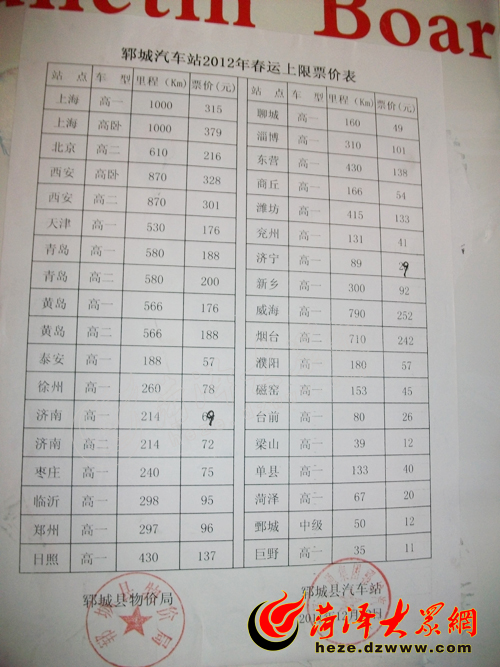 Bulletin Boar
郓城汽车站2012年春运上限票价表
站 点 车 型 里程 (Km) 票价(元)
上海 高一 1000 315
上海 高卧 1000 379
北京 高二 610 216
西安 高卧 870 328
西安 高二 870 301
天津 高一 530 176
青岛 高一 580 188
青岛 高二 580 200
黄岛 高一 566 176
黄岛 高二 566 188
泰安 高一 188 57
徐州 高一 260 78
济南 高一 214 69
济南 高二 214 72
枣庄 高一 240 75
临沂 高一 298 95
郑州 高一 297 96
日照 高一 430 137
站 点 车 型 里程 (Km) 票价(元)
聊城 高一 160 49
淄博 高一 310 101
东营 高一 430 138
商丘 高一 166 54
潍坊 高一 415 133
兖州 高一 131 41
济宁 高一 89 29
新乡 高一 300 92
威海 高一 790 252
烟台 高二 710 242
濮阳 高一 180 57
磁窑 高一 153 45
台前 高一 80 26
梁山 高一 39 12
单县 高一 133 40
菏泽 高一 67 20
鄄城 中级 50 12
巨野 高二 35 11
郓城县物价局
郓城县汽车站
菏泽大众网
heze.dzwww.com